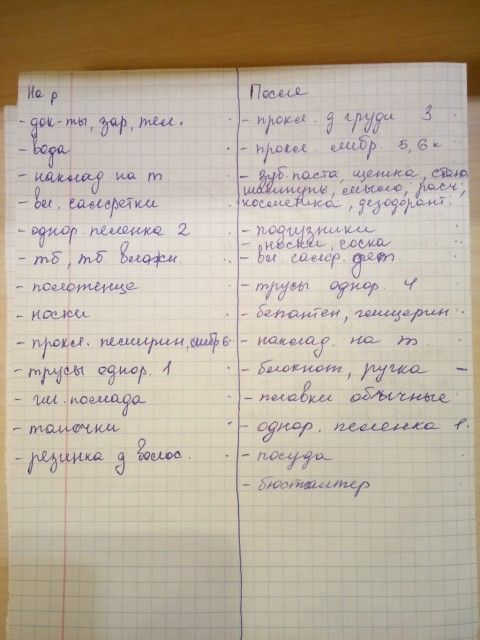 На р
- док-ты, зар, тел.
- вода
- наклад на т
- вл. салфетки
- однор. пеленка 2
- тб, тб влажн.
- полотенце
- носки
- прокл. песигрин, либр 6
- трусы однор. 1
- гиг. помада
- тапочки
- резинка д волос.
После
- прокл. д груди 3
- прокл. либр. 5, 6 к
- зуб. паста, щетка,
шампунь, мыло, расч,
косметика, дезодорант.
- подгузники
- носки, соска
- вл. салф. дет
- трусы однор. 4
- бепантен, глицерин
- наклад. на т.
- блокнот, ручка -
- плавки обычные
- однор. пеленка 1.
- посуда
- бюстгалтер